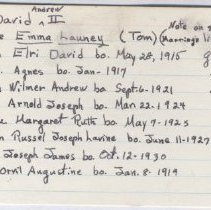 Andrew
David ^ II
Emma Launey (Tom) Note on
Elri David bo. May 28, 1915
Agnes bo. Jan- 1917
Wilmer Andrew bo Sept. 6. 1921
Arnold Joseph bo. Mar. 22-1924
Margaret Ruth bo. May 7-1925
Russel Joseph Lavine bo. June 11-1927
Joseph James bo. Oct. 12-1930
Orvil Augustine bo. Jan. 8-1919